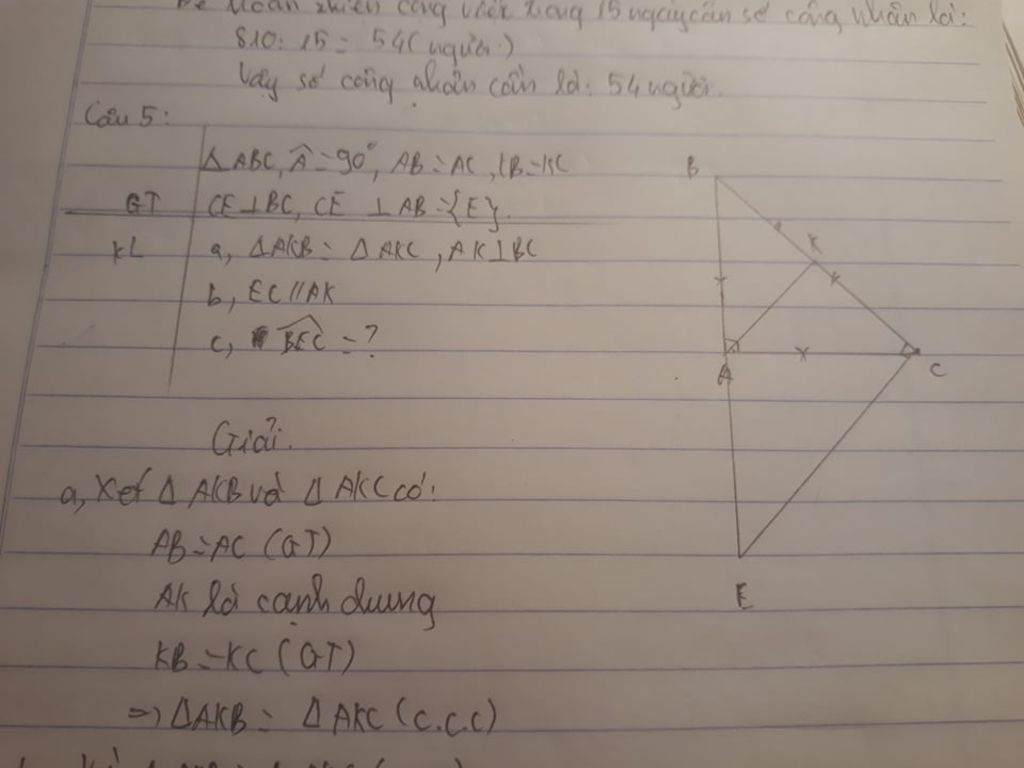 Để hoàn thiên công việc trong 15 ngày cần số công nhân là:
810: 15 = 54 (người)
Vậy số công nhân cần là: 54 người.
Câu 5:
Δ ABC, Â = 90°, AB = AC, KB = KC
GT CE ⊥ BC, CE ⊥ AB = {E}.
KL a, ΔAKB = Δ AKC, AK ⊥ BC
b, EC // AK
c, BEC = ?
B
K
A
C
E
Giải.
a, Xét Δ AKB và Δ AKC có:
AB = AC (GT)
AK là cạnh chung
KB = KC (GT)
=> ΔAKB = Δ AKC (C.C.C)